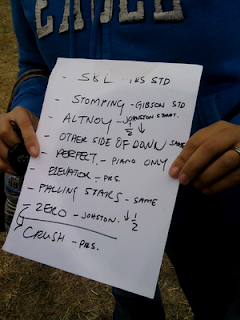 EAGLE
- SBL - PRS STD
- STOMPING - GIBSON STD
- ALTNOY - JOHNSTON STDRT. ↓ 1/2
- OTHER SIDE OF DOWN SAME
- PERFECT - PIANO ONLY
- ELEVATOR - PRS.
- FALLING STARS - SAME
- ZERO - JOHNSTON. ↓ 1/2
CRUSH - PRS.